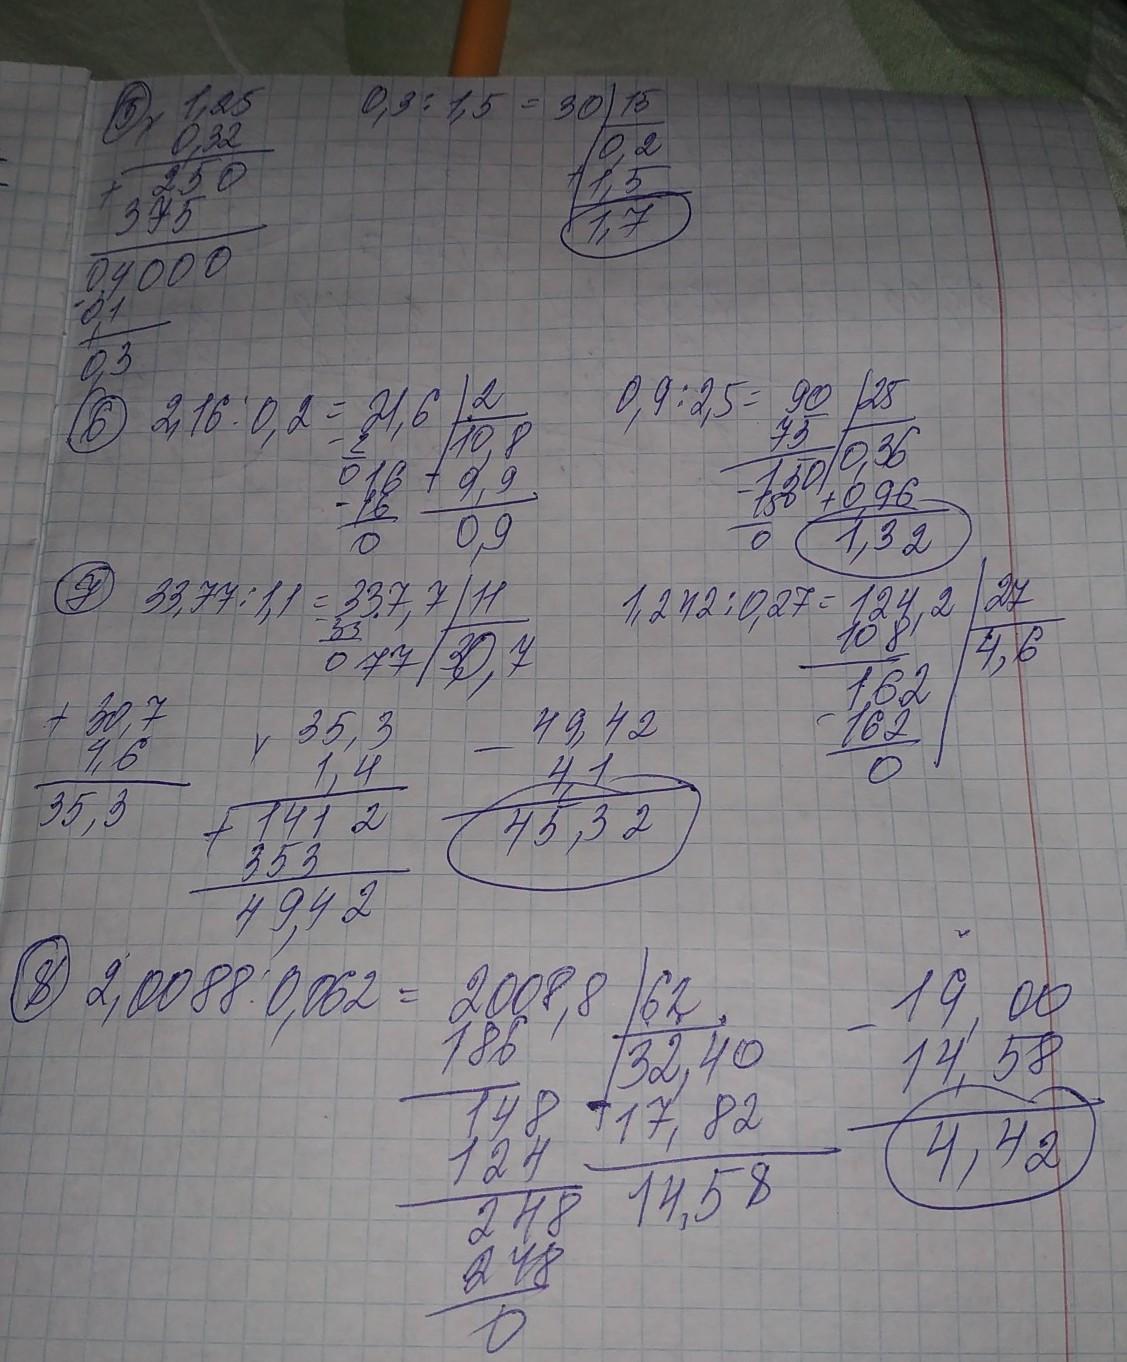 5 × 1,25 0,3 : 1,5 = 30 | 15
0,32 0,2
+ 250 + 1,5
375 1,7
0,4000
- 0,1
0,3
6 2,16 : 0,2 = 21,6 | 2 0,9 : 2,5 = 90 | 25
- 2 10,8 75 0,36
016 - 9,9 - 150 + 0,96
- 16 0,9 150 1,32
0 0
7 33,77 : 1,1 = 337,7 | 11 1,242 : 0,27 = 124,2 | 27
33 30,7 108 4,6
0 77 162
+ 30,7 × 35,3 - 49,42 - 162
4,6 1,4 4,1 0
35,3 + 1412 45,32
353
49,42
8 2,0088 : 0,062 = 2008,8 | 62 - 19,00
186 32,40 14,58
148 - 17,82 4,42
124 14,58
248
248
0